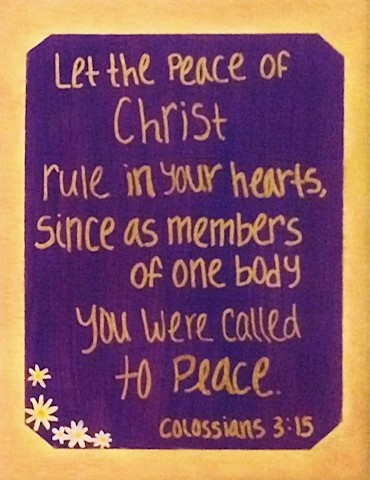 Let the Peace of
Christ
rule in your hearts,
since as members
of one body
you were called
to Peace.
Colossians 3:15